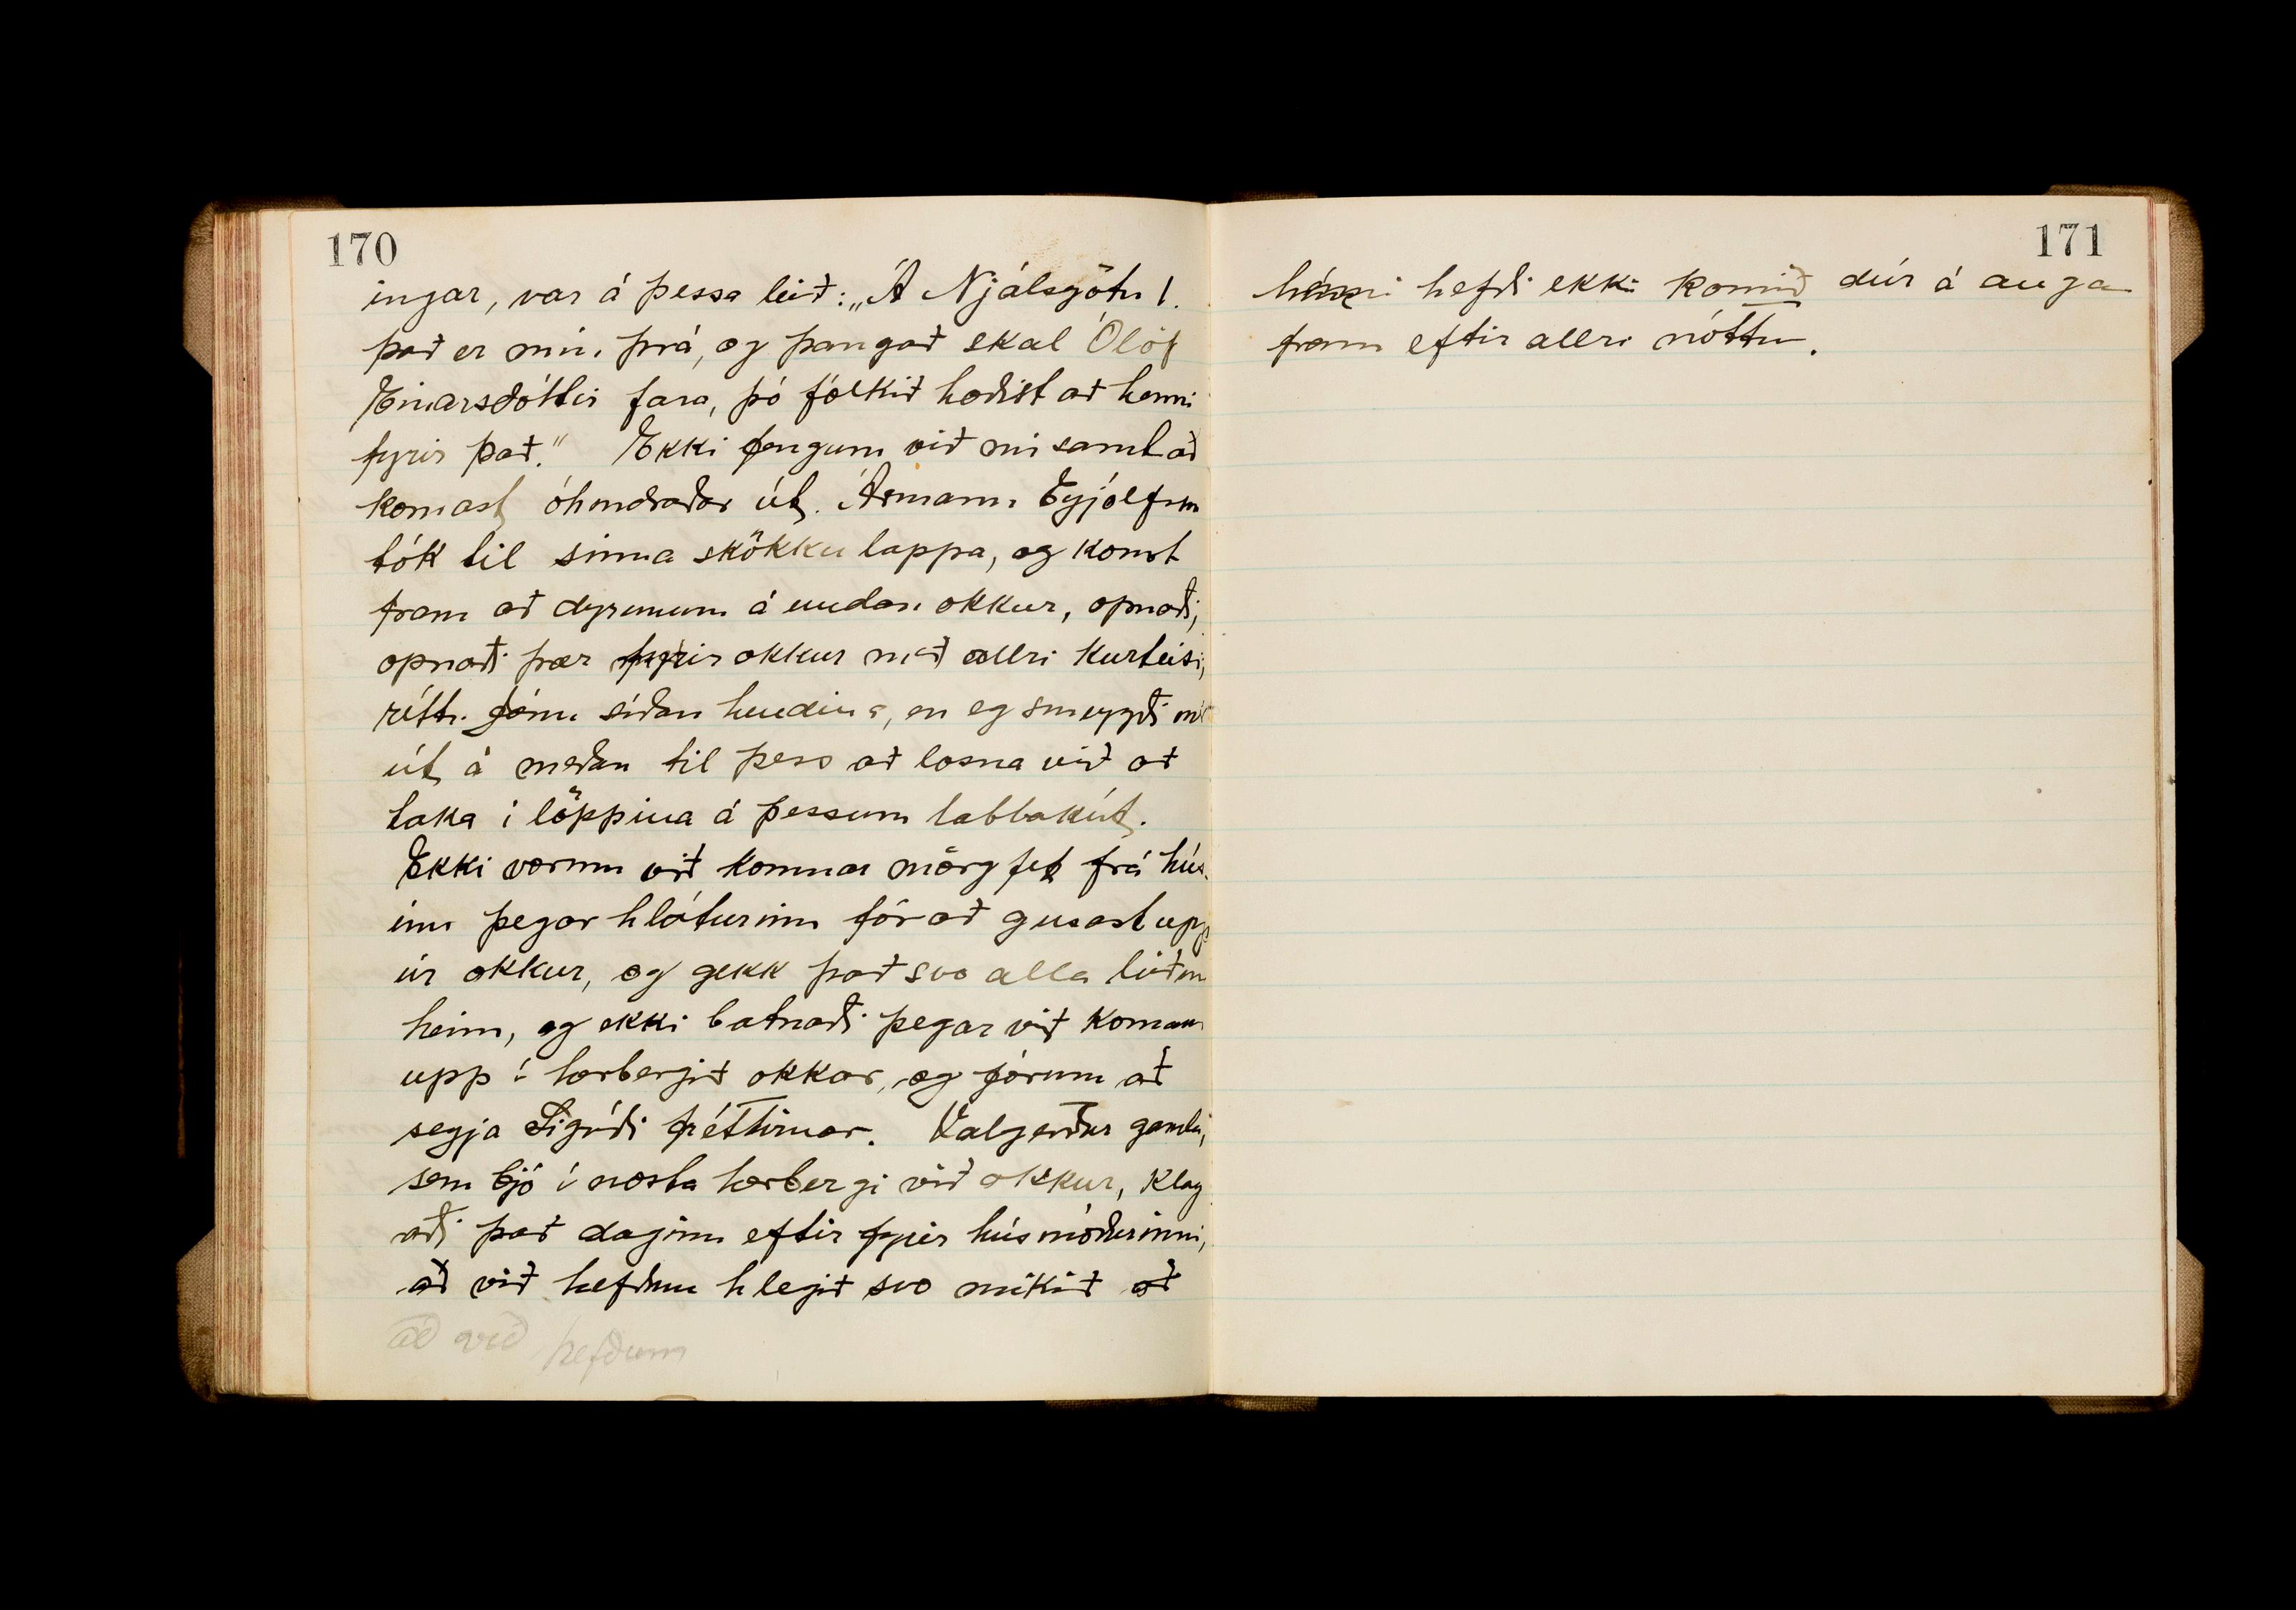 170
ingar, var á þessa leið: „Á Njálsgötu 1.
það er mín þrá, og þangað skal Ólöf
Einarsdóttir fara, þó fólkið hæðist að henni
fyrir það." Ekki fengum við nú samt að
komast óhindraðar út. Ármann Eyjólfsson
tók til sinna skökku lappa, og komst
fram að dyrunum á undan okkur, opnaði,
opnaði þær fyrir okkur með allri kurteisi,
rétti Jónu síðan hendina, en eg smeygði mér
út á meðan til þess að losna við að
taka í löppina á þessum labbakút.
Ekki vorum við komnar mörg fet frá hús
inu þegar hláturinn fór að gusast upp
úr okkur, og gekk það svo alla leiðina
heim, og ekki batnaði þegar við komum
upp í herbergið okkar, og fórum að
segja Sigríði fréttirnar. Valgerður gamla,
sem bjó í næsta herbergi við okkur, klag
aði það daginn eftir fyrir húsmóðurinni,
að við hefðum hlegið svo mikið að
að við hefðum
171
henni hefði ekki komið dúr á auga
fram eftir allri nóttu.